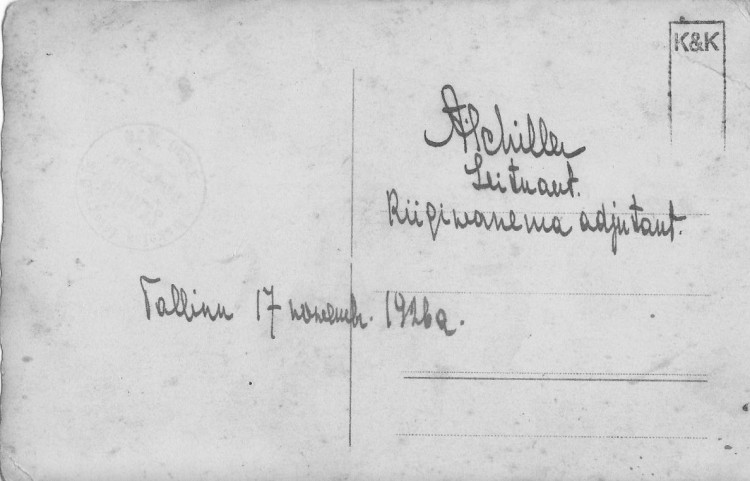 K&K
A. Schiller
Leitnant.
Riigiwanema adjutant.
Tallinn 17 nowembr. 1926 a.